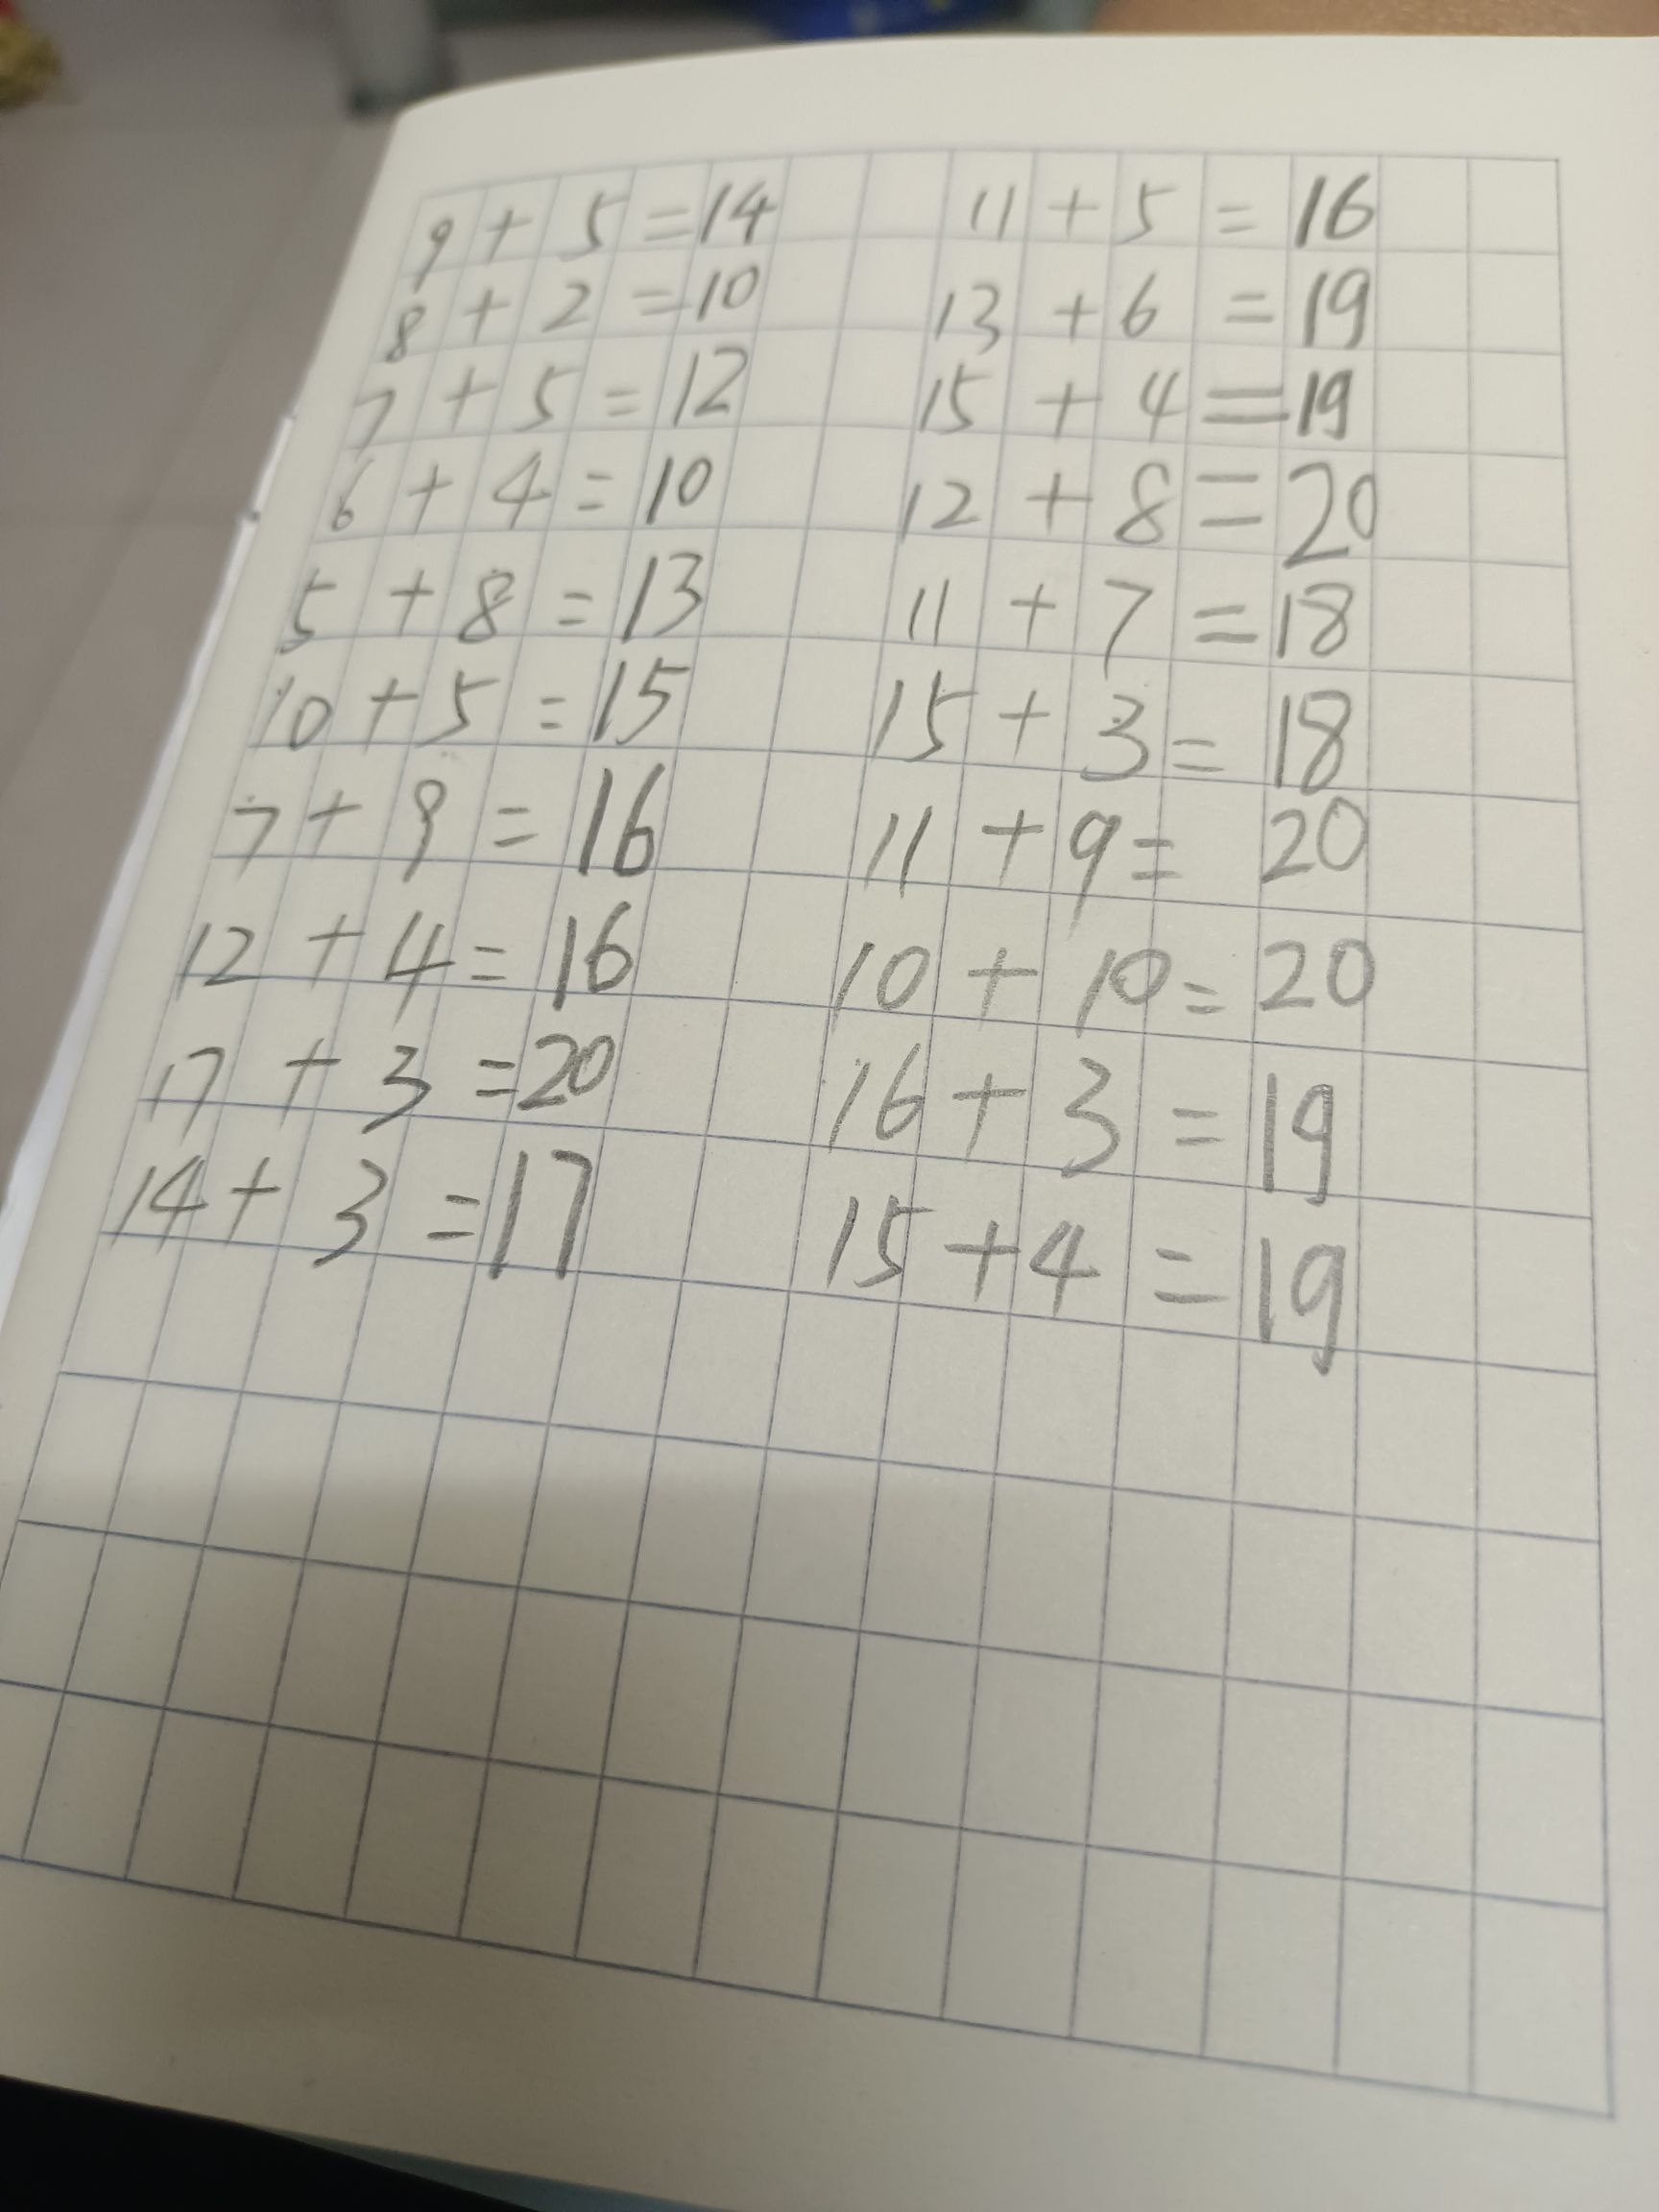 9 + 5 = 14
8 + 2 = 10
7 + 5 = 12
6 + 4 = 10
5 + 8 = 13
10 + 5 = 15
7 + 9 = 16
12 + 4 = 16
17 + 3 = 20
14 + 3 = 17
11 + 5 = 16
13 + 6 = 19
15 + 4 = 19
12 + 8 = 20
11 + 7 = 18
15 + 3 = 18
11 + 9 = 20
10 + 10 = 20
16 + 3 = 19
15 + 4 = 19